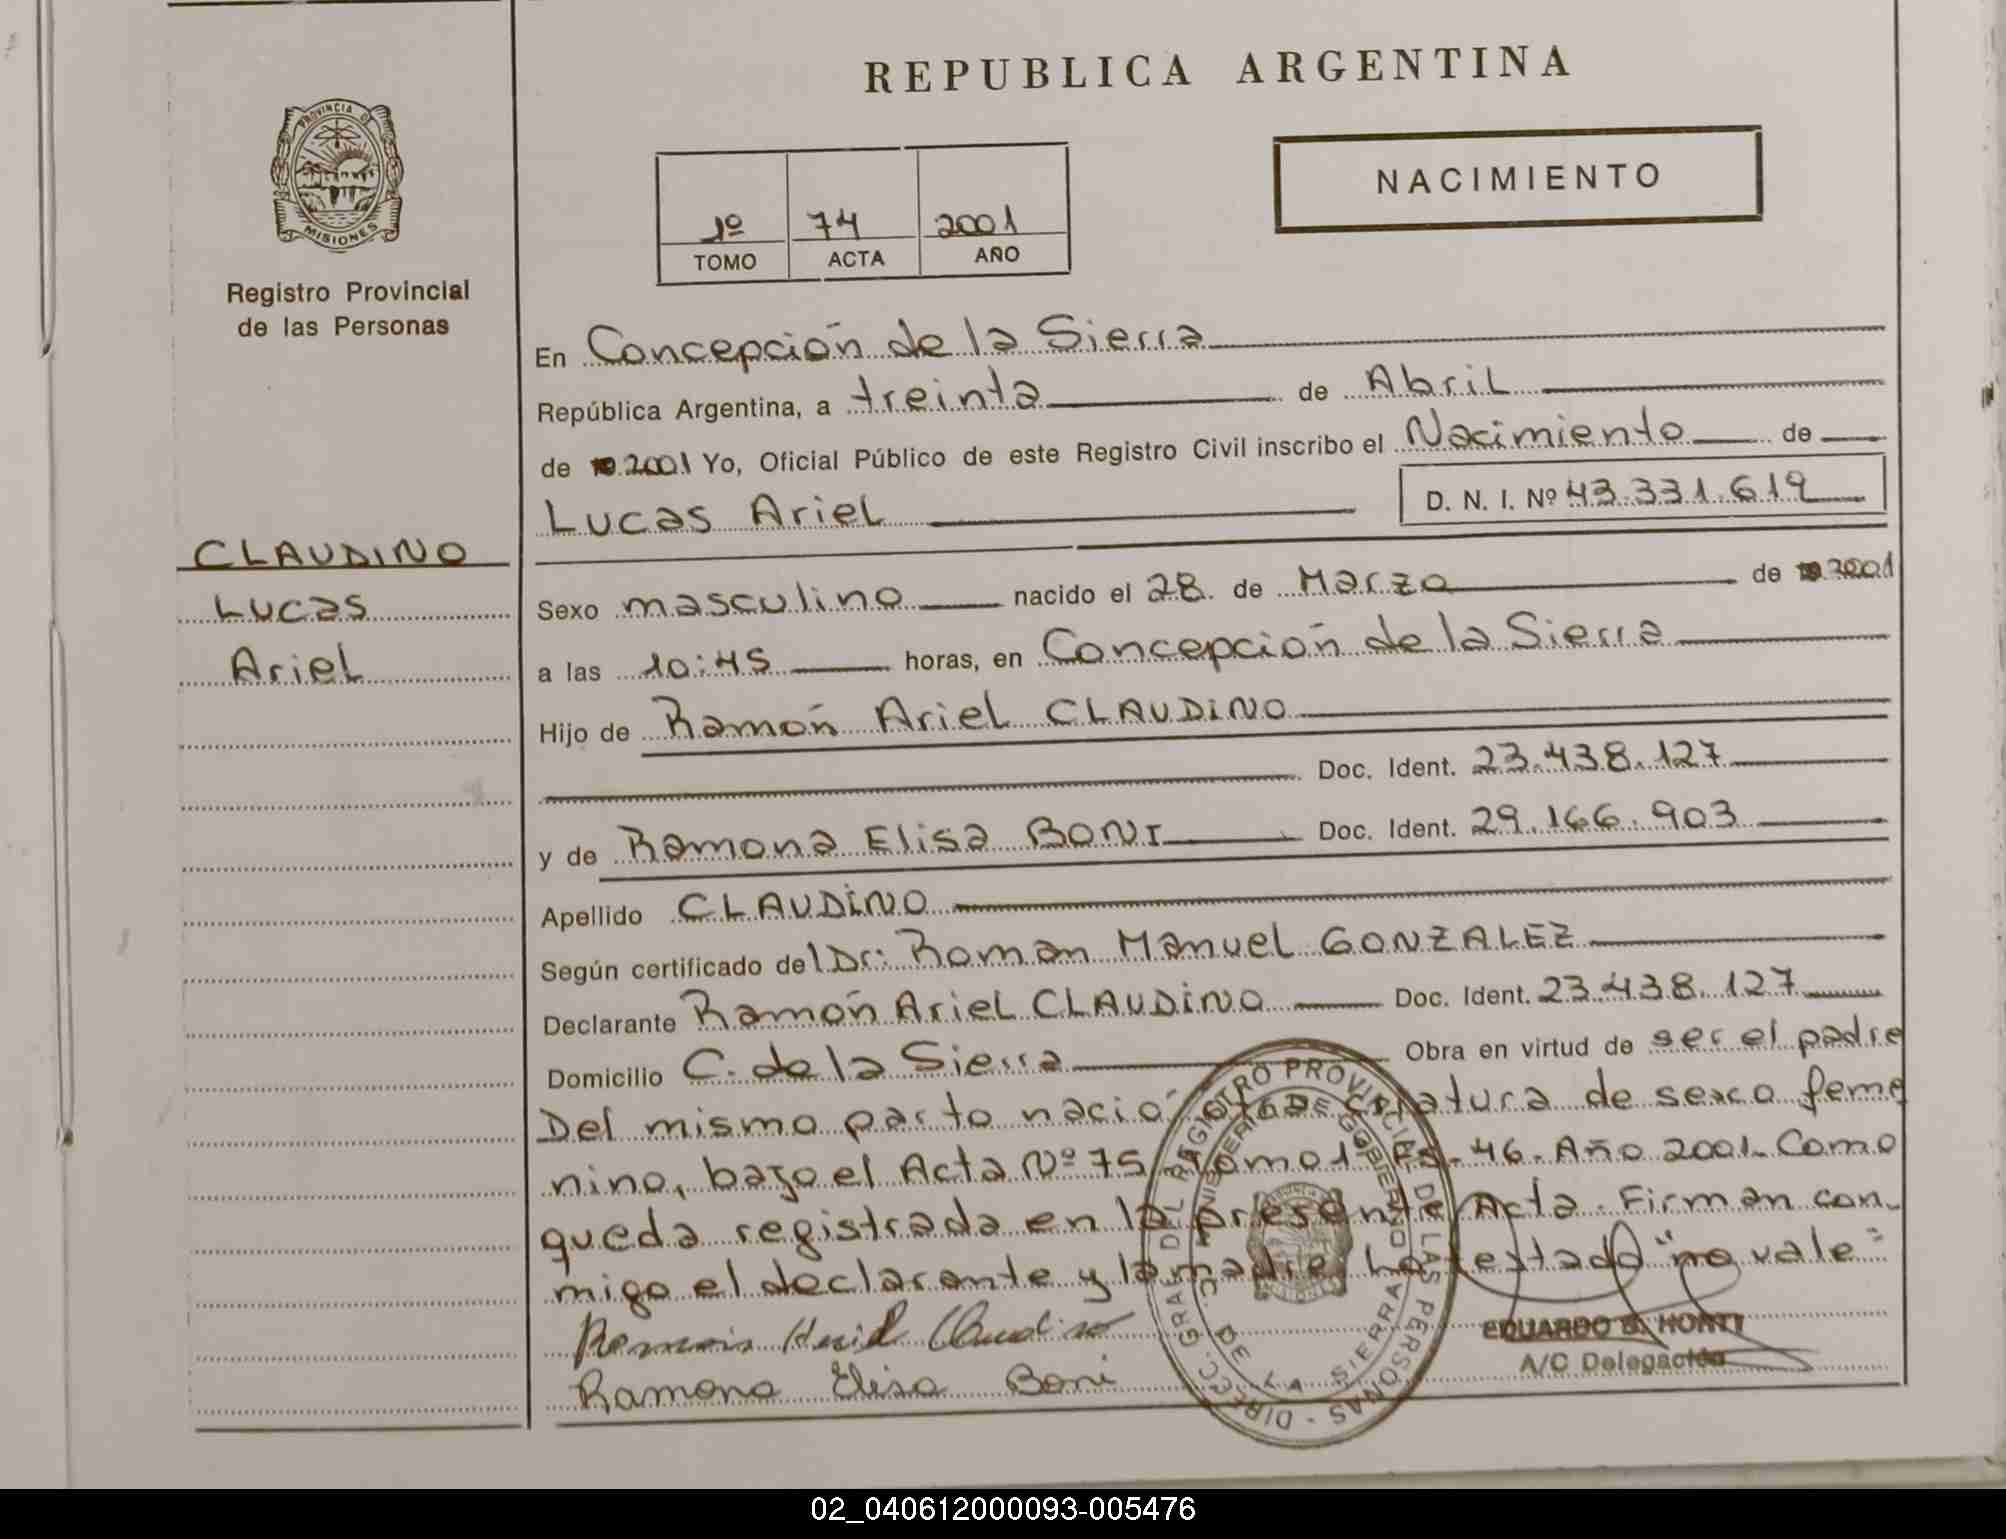 REPUBLICA ARGENTINA
PROVINCIA DE
MISIONES
Registro Provincial
de las Personas
NACIMIENTO
1º 74 2001
TOMO ACTA AÑO
CLAUDINO
Lucas
Ariel
En Concepción de la Sierra
República Argentina, a treinta de Abril
de 2001 Yo, Oficial Público de este Registro Civil inscribo el Nacimiento de
Lucas Ariel D. N. I. Nº 43.331.619
Sexo masculino nacido el 28 de Marzo de 2001
a las 10:45 horas, en Concepción de la Sierra
Hijo de Ramón Ariel CLAUDINO
Doc. Ident. 23.438.127
y de Ramona Elisa BONI Doc. Ident. 29.166.903
Apellido CLAUDINO
Según certificado del Dr: Roman Manuel GONZALEZ
Declarante Ramón Ariel CLAUDINO Doc. Ident. 23.438.127
Domicilio C. de la Sierra Obra en virtud de ser el padre
Del mismo parto nació otra criatura de sexo feme
nino, bajo el Acta Nº 75 Tomo 1º Fs. 46. Año 2001. Como
queda registrada en la presente Acta. Firman con-
migo el declarante y la madre, ha testado "no vale"
Ramón Ariel Claudino
Ramona Elisa Boni
DIRECC. GRAL. DEL REGISTRO PROVINCIAL DE LAS PERSONAS
MINISTERIO DE GOBIERNO
C. DE LA SIERRA
EDUARDO B. HORTT
A/C Delegación
02_040612000093-005476